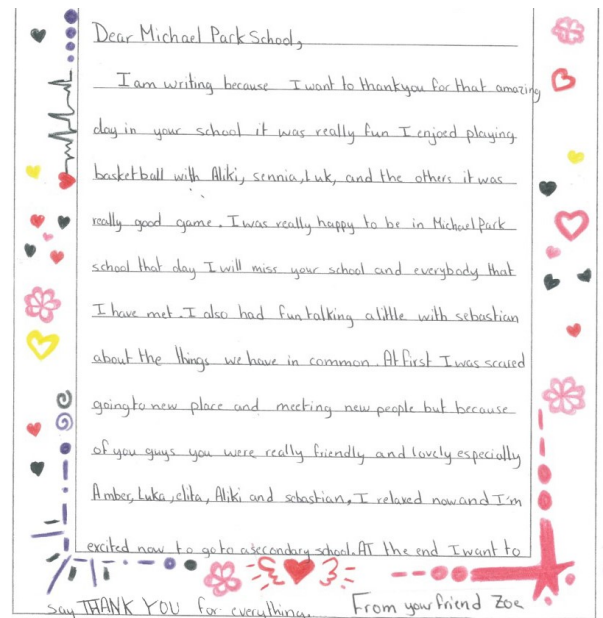 Dear Michael Park School,
I am writing because I want to thankyou for that amazing
day in your school it was really fun I enjoed playing
basketball with Aliki, sennia, Luk, and the others it was
really good game. I was really happy to be in Michael Park
school that day I will miss your school and everybody that
I have met. I also had fun talking a little with sebastian
about the things we have in common. At first I was scared
going to new place and meeting new people but because
of you guys you were really friendly and lovely especially
Amber, Luka, elita, Aliki and sebastian, I relaxed now and I'm
excited now to go to a secondary school. AT the end I want to
say THANK YOU for everything. From your friend Zoe